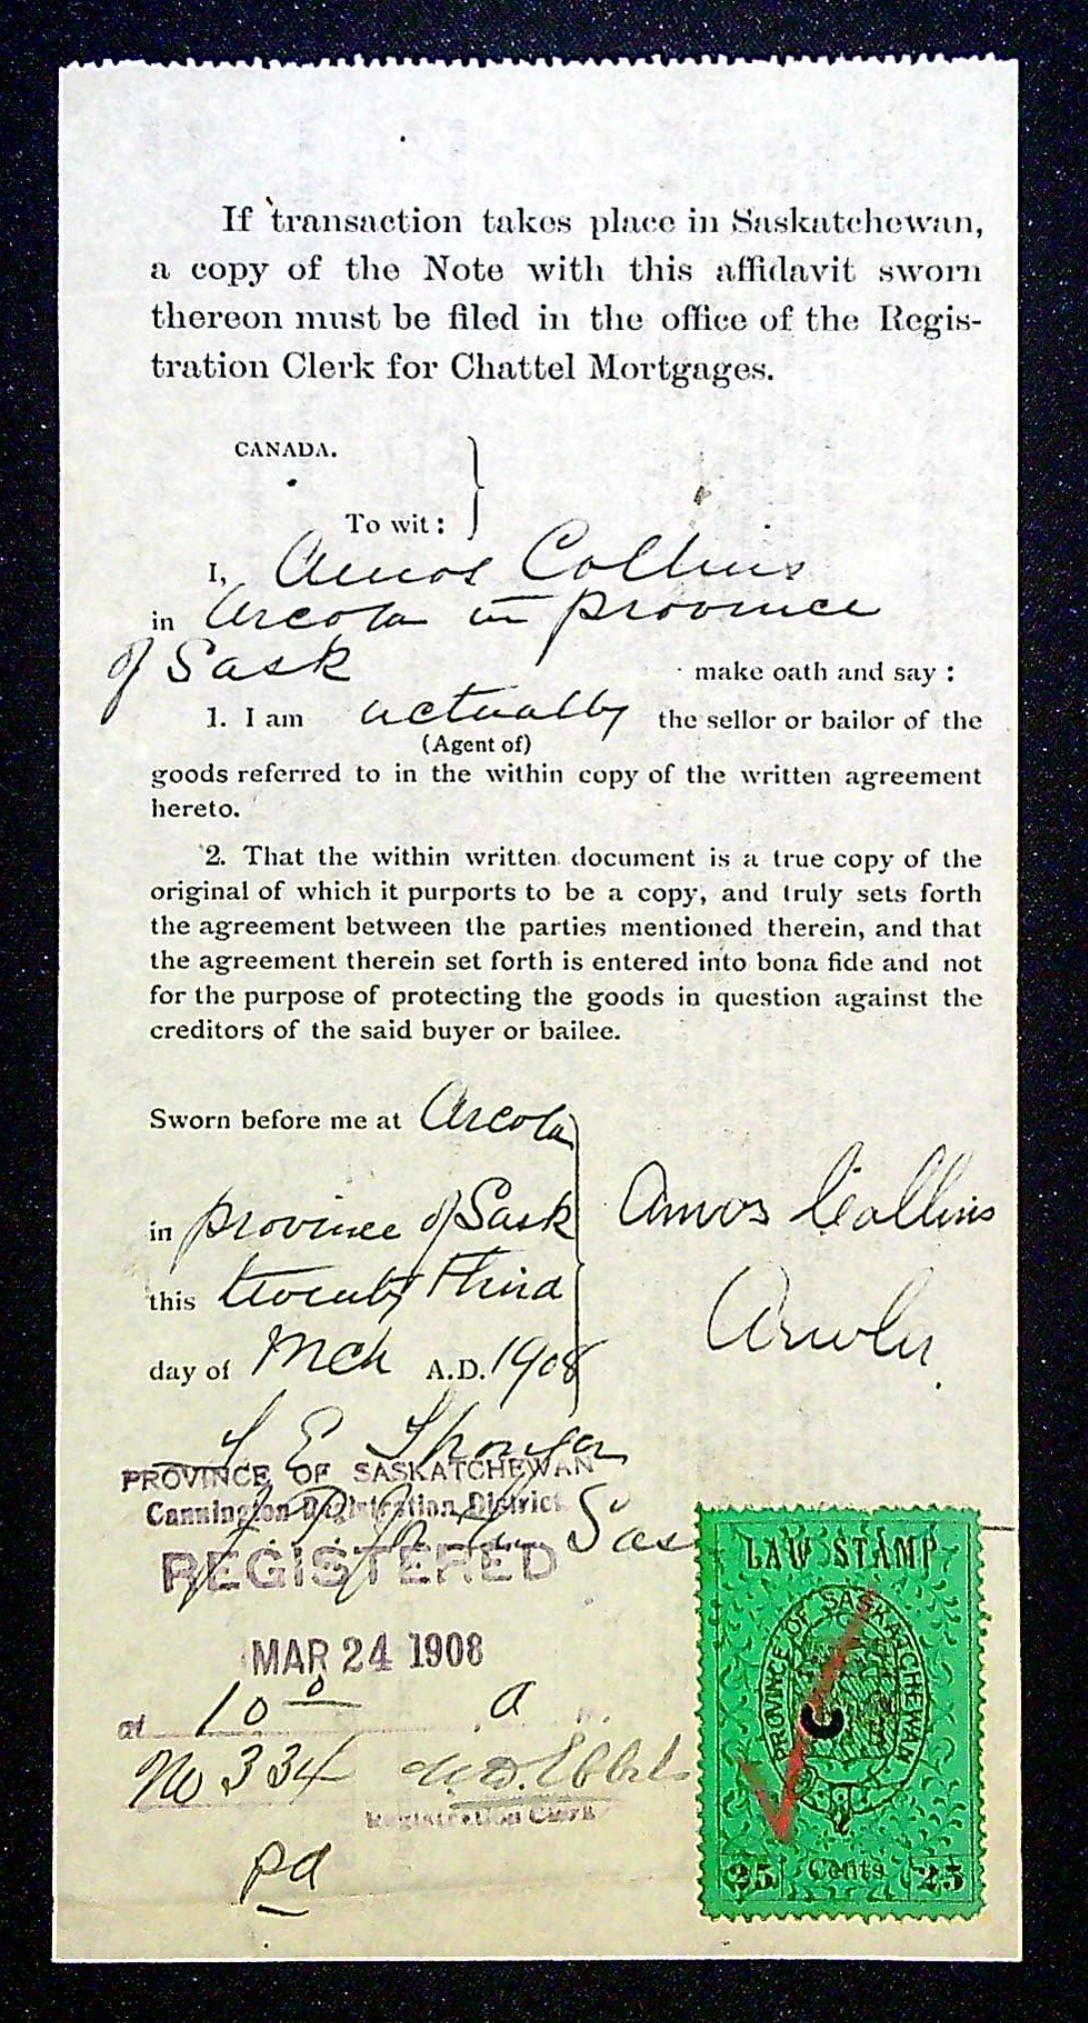 If transaction takes place in Saskatchewan,
a copy of the Note with this affidavit sworn
thereon must be filed in the office of the Regis-
tration Clerk for Chattel Mortgages.
CANADA.
To wit :
I, Amos Collins
in Arcola in province
of Sask make oath and say :
1. I am actually the sellor or bailor of the
(Agent of)
goods referred to in the within copy of the written agreement
hereto.
2. That the within written document is a true copy of the
original of which it purports to be a copy, and truly sets forth
the agreement between the parties mentioned therein, and that
the agreement therein set forth is entered into bona fide and not
for the purpose of protecting the goods in question against the
creditors of the said buyer or bailee.
Sworn before me at Arcola
in province of Sask
Amos Collins
this twenty third
day of Mch A.D. 1908
PROVINCE OF SASKATCHEWAN
Cannington Registration District
REGISTERED
MAR 24 1908
at 10 0 a
No 334
Registration Clerk
pd
LAW STAMP
PROVINCE OF SASKATCHEWAN
C
25 Cents 25